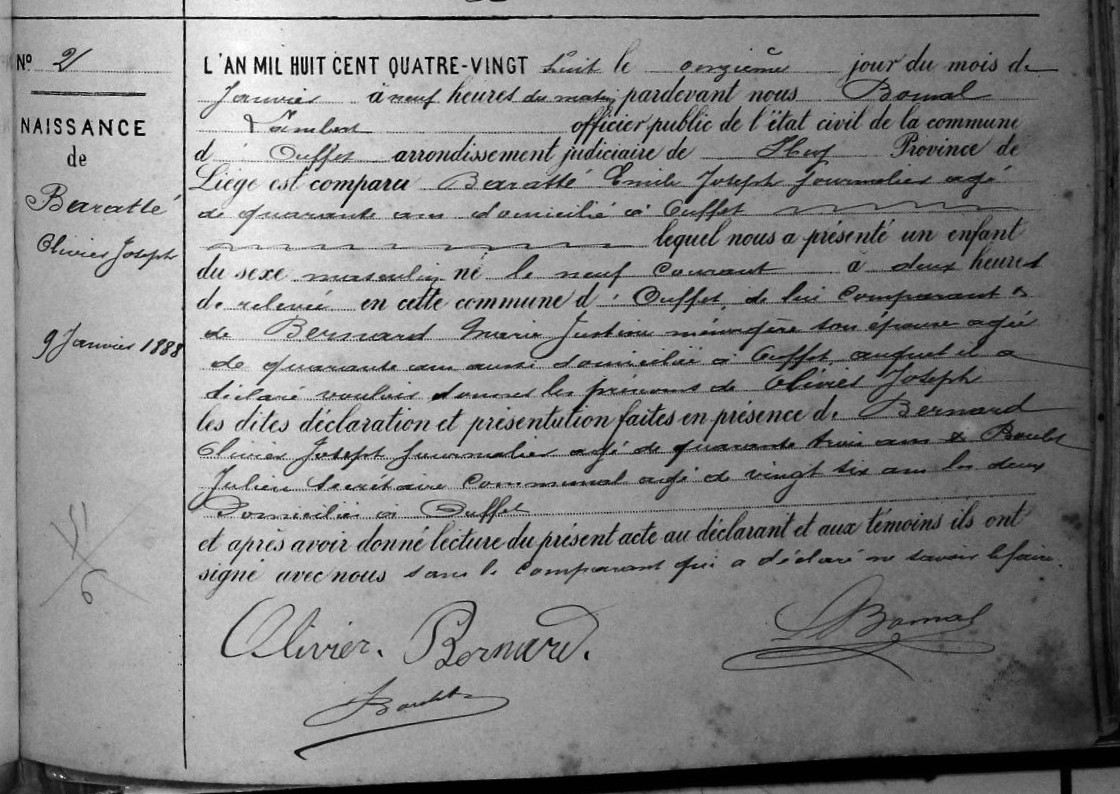 N° 2
NAISSANCE
de
Baratté
Olivier Joseph
9 Janvier 1888
6
L'AN MIL HUIT CENT QUATRE-VINGT huit le onzième jour du mois de
Janvier à neuf heures du matin pardevant nous Bomal
Lambert officier public de l'état civil de la commune
d'Ouffet arrondissement judiciaire de Huy Province de
Liège est comparu Baratté Emile Joseph Journalier agé
de quarante ans domicilié à Ouffet
lequel nous a présenté un enfant
du sexe masculin né le neuf courant à deux heures
de relevée en cette commune d'Ouffet, de lui comparant &
de Bernard Marie Justine ménagère son épouse agée
de quarante ans aussi domiciliée à Ouffet, auquel il a
déclaré vouloir donner les prénoms de Olivier Joseph
les dites déclaration et présentution faites en présence de Bernard
Olivier Joseph Journalier agé de quarante trois ans & Boulet
Julien Secrétaire Communal agé de vingt six ans les deux
Domiciliés à Ouffet
et apres avoir donné lecture du présent acte au déclarant et aux témoins ils ont
signé avec nous sauf le comparant qui a déclaré ne savoir le faire.
Olivier. Bernard.
L Bomal
Boulet